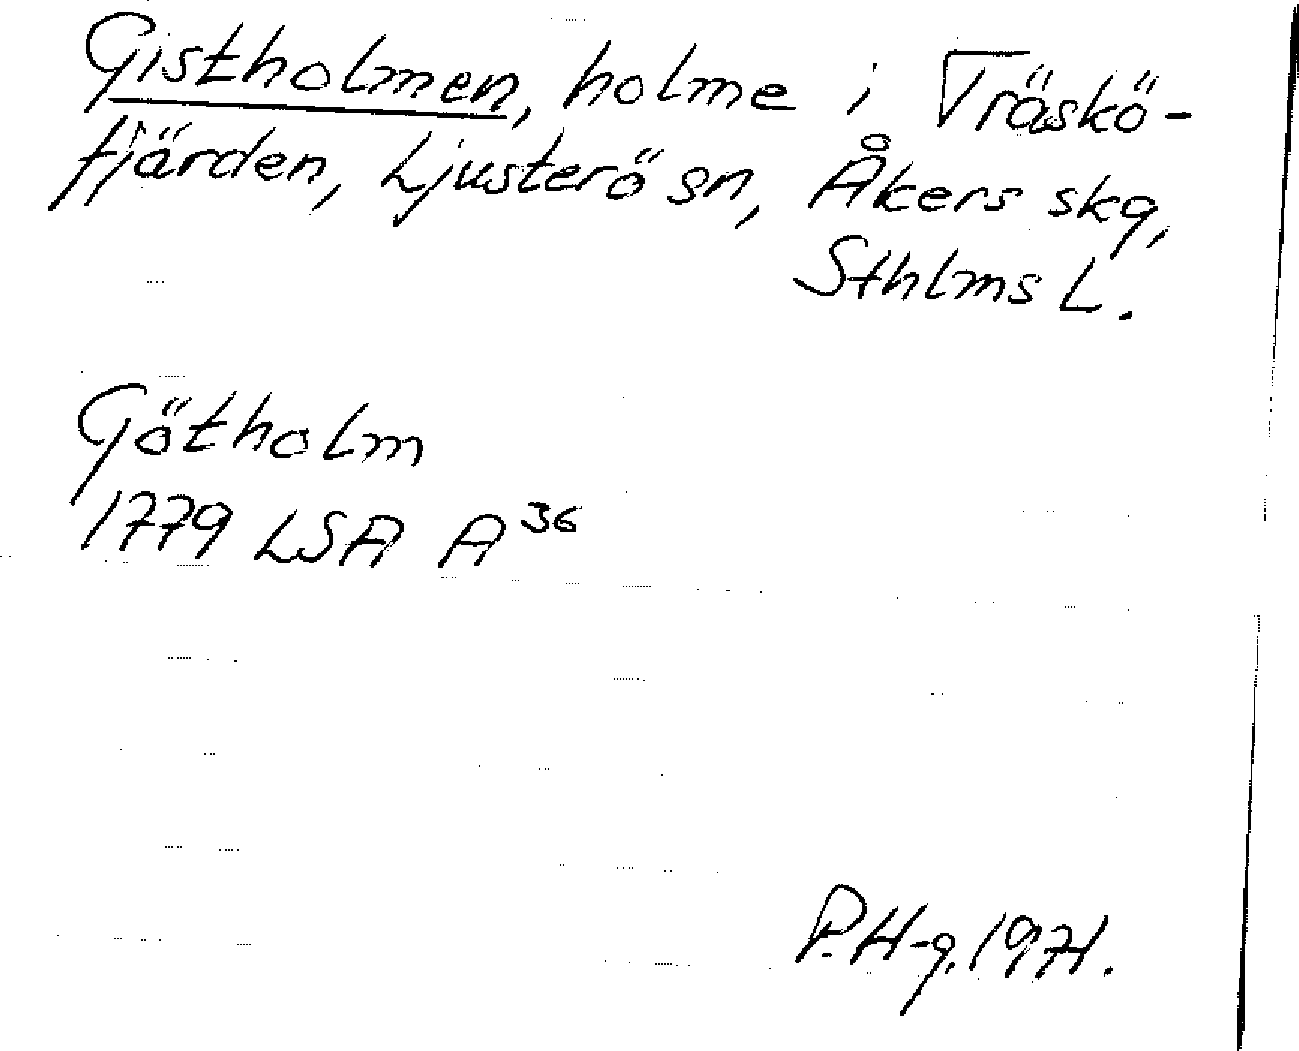 Gistholmen, holme i Träskö-
fjärden, Ljusterö sn, Åkers skg,
Sthlms L.
Götholm
1779 LSA A36
P.H-g. 1971.